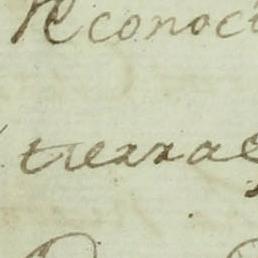 Reconoci
tierras